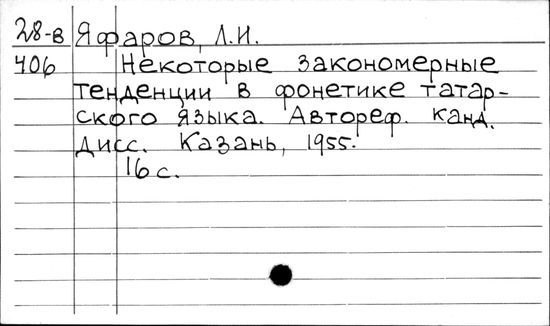 28-в Яфаров, Л.И.
406 Некоторые закономерные
тенденции в фонетике татар-
ского языка. Автореф. канд.
дисс. Казань, 1955.
16 с.